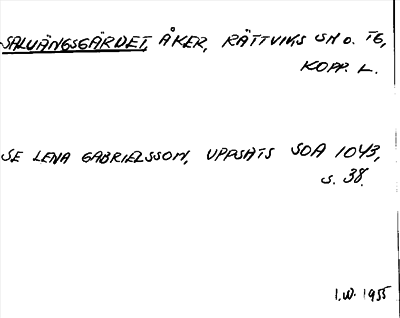 SALUÄNGSGÄRDET, ÅKER, RÄTTVIKS SN O. TG,
KOPP. L.
SE LENA GABRIELSSON, UPPSATS SOA 1043,
s. 38.
I.W. 1955